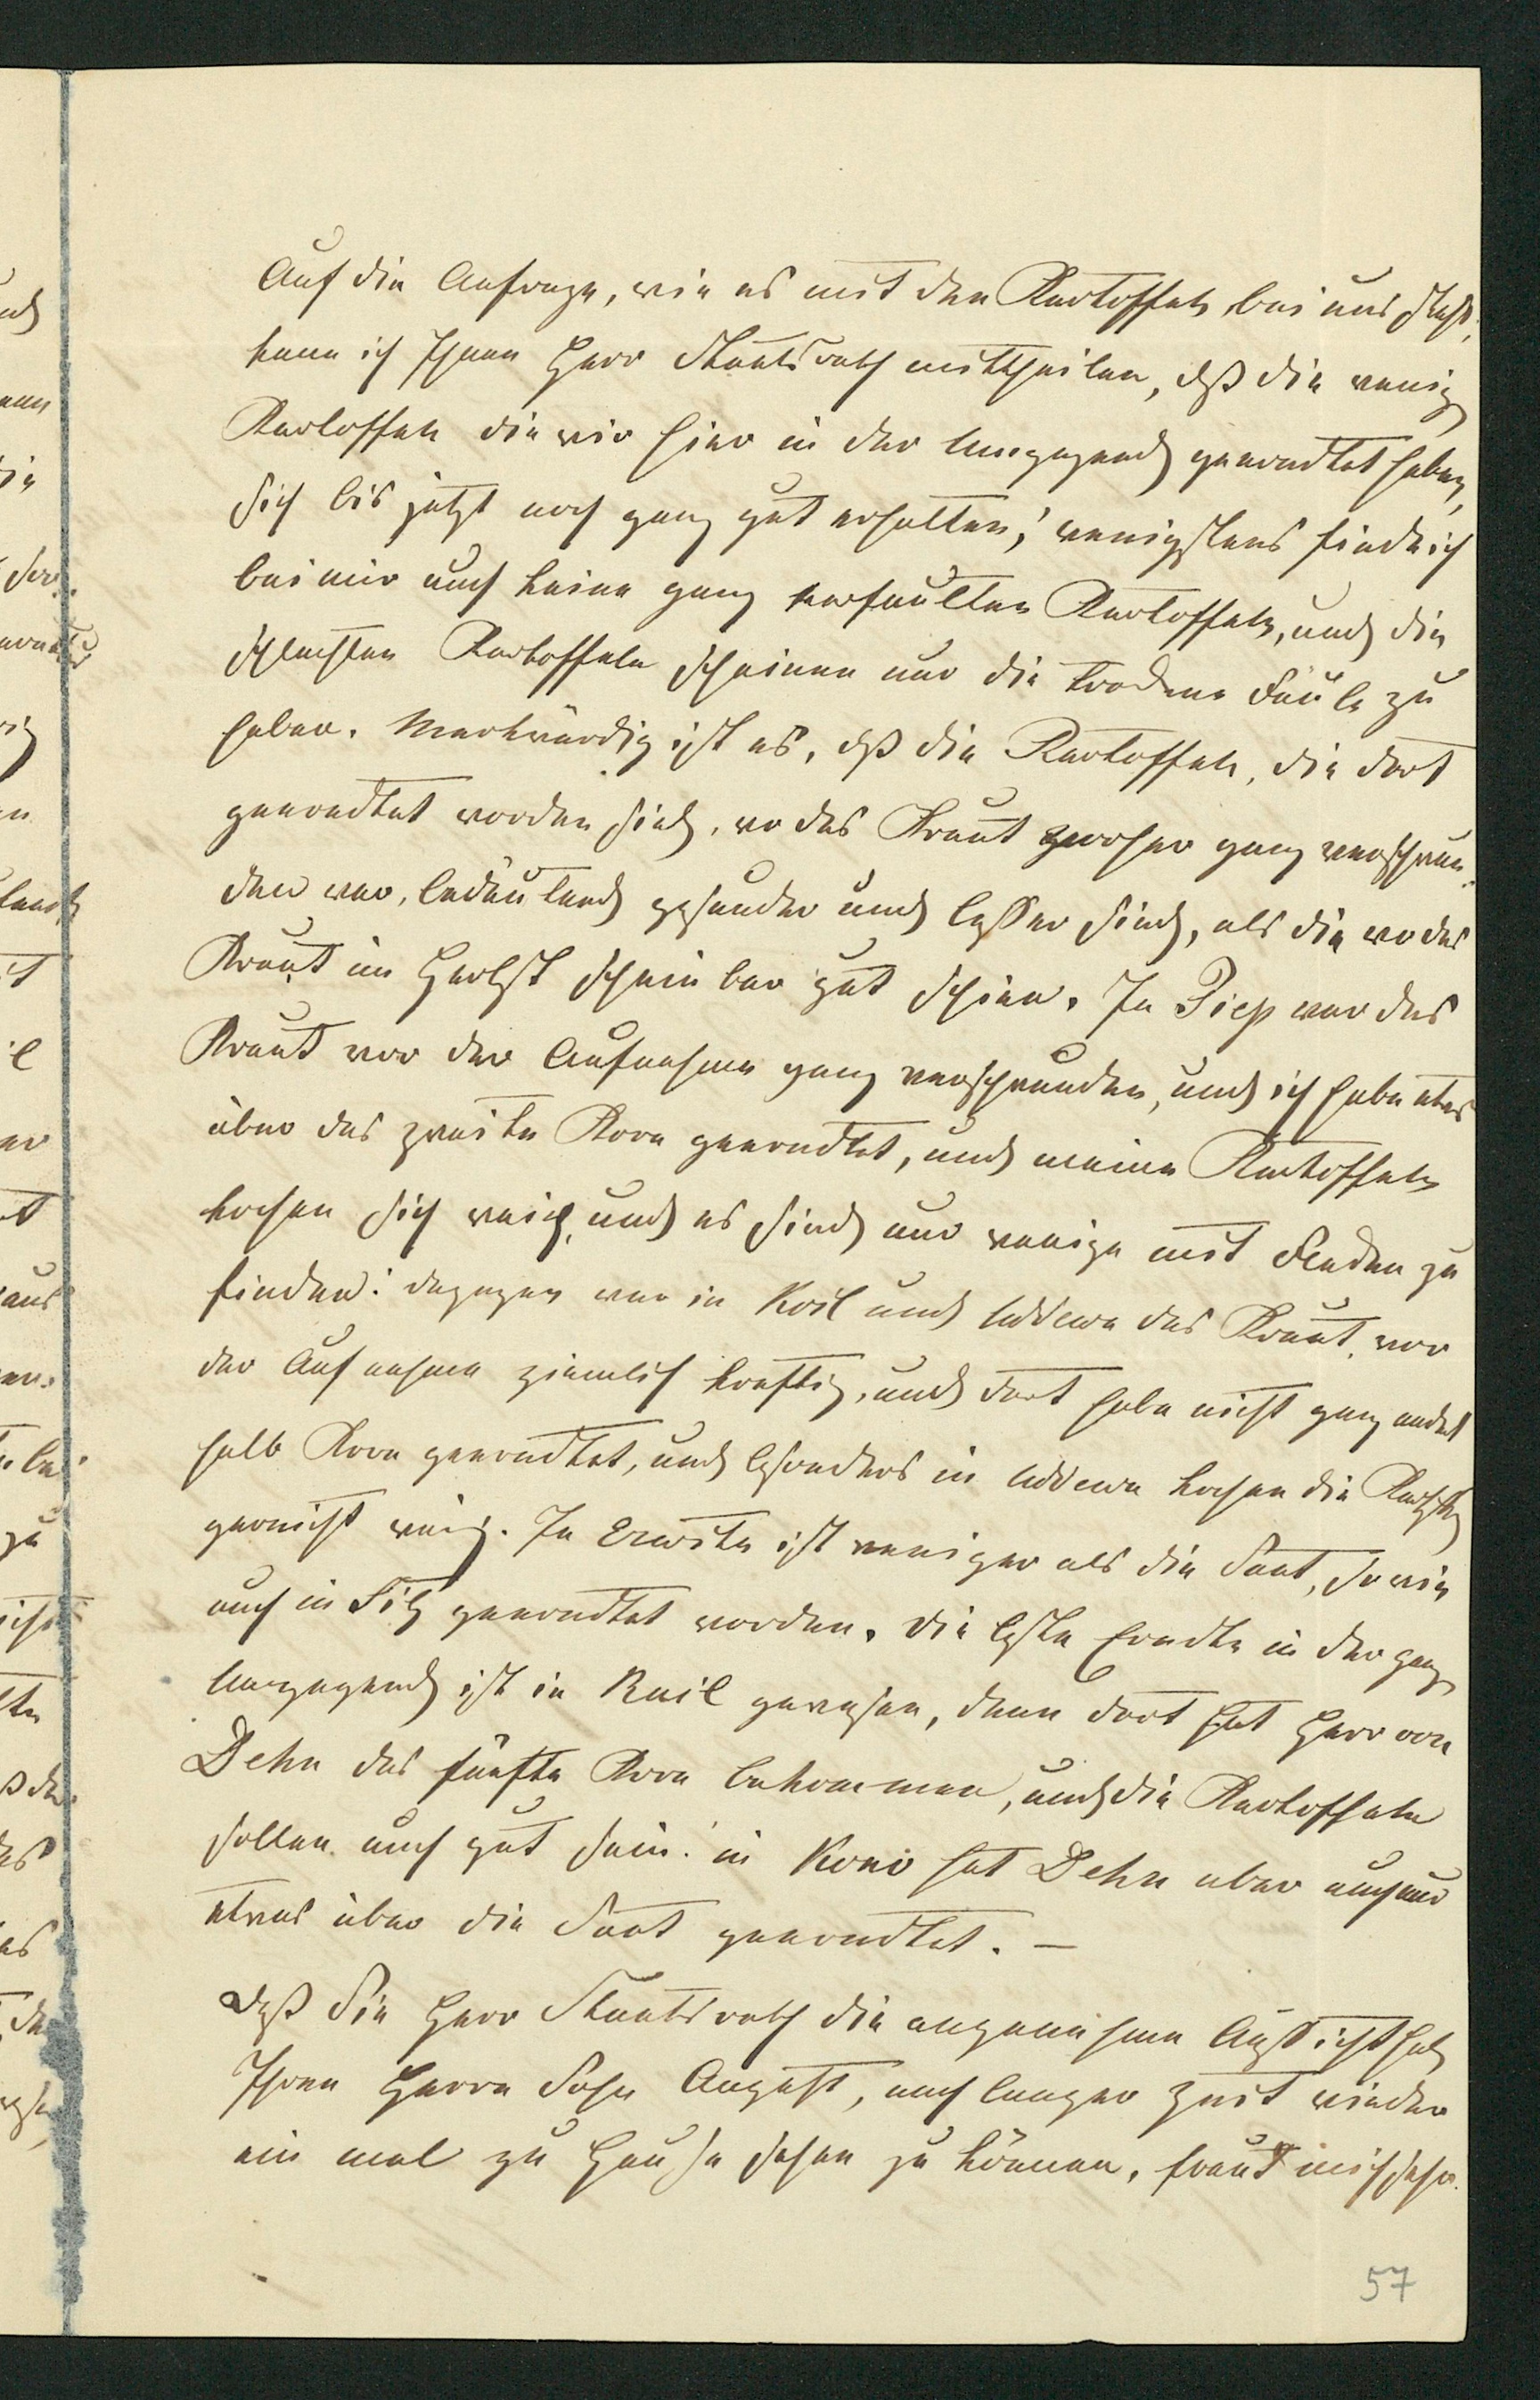 Auf die Anfrage, wie es mit den Kartoffeln bei uns steht,
kann ich Ihnen Herr Staatsrath mittheilen, daß die wenig
Kartoffeln die wir hier in der Umgegend geerndtet haben,
sich bis jetzt noch ganz gut erhalten; wenigstens finde ich
bei mir auch keine ganz verfaulten Kartoffeln, und die
schlechten Kartoffeln scheinen nur die trockene Fäule zu
haben. Merkwürdig ist es, daß die Kartoffeln, die dort
geerndtet worden sind, wo das Kraut vorher ganz verschwun-
den war, bedeutend gesunder und besser sind, als die wo das
Kraut im Herbst scheinbar gut schien. In Piep war das
Kraut vor der Aufnahme ganz verschwunden, und ich habe etwas
über das zweite Korn geerndtet, und meine Kartoffeln
kochen sich weich, und es sind nur wenige mit Flecken zu
finden: dagegen war in Koil und das Kraut, vor
der Aufnahme ziemlich kräftig, und dort habe nicht ganz andert
halb Korn geerndtet, und besonders in kochen die Kartoffeln
garnicht weich. In Erwita ist weniger als die Saat, so wie
auch in Sitz geerndtet worden. Die beste Erndte in der ganzen
Umgegend ist in Kuil gewesen, denn dort hat Herr von
Dehn das fünfte Korn bekommen, und die Kartoffeln
sollen auch gut sein: in hat Dehn aber auch nur
etwas über die Saat geerndtet. —
Daß Sie Herr Staatsrath die angenehme Aussicht haben
Ihren Herrn Sohn August, nach langer Zeit wieder
ein mal zu Hause sehen zu können, freut mich sehr.
57